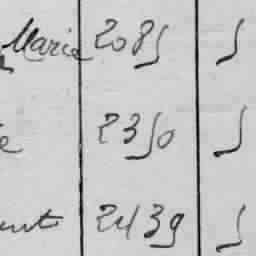 Marie 2085 5
e 2350 5
ent 2439 5